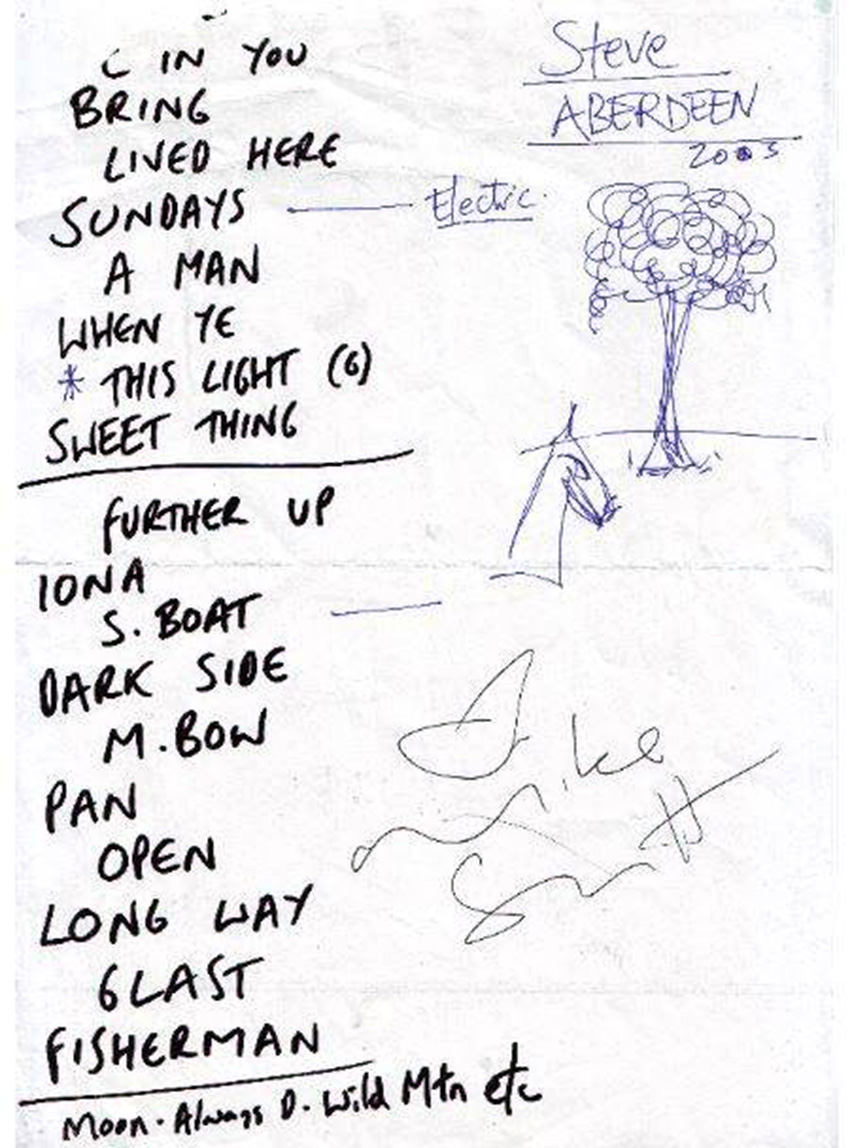 C IN YOU
BRING
LIVED HERE
SUNDAYS
A MAN
WHEN YE
* THIS LIGHT (6)
SWEET THING
FURTHER UP
IONA
S. BOAT
DARK SIDE
M. BOW
PAN
OPEN
LONG WAY
GLAST
FISHERMAN
Moon. Always D. Wild Mtn etc
Steve
ABERDEEN
2003
Electric.
Mike
Scott